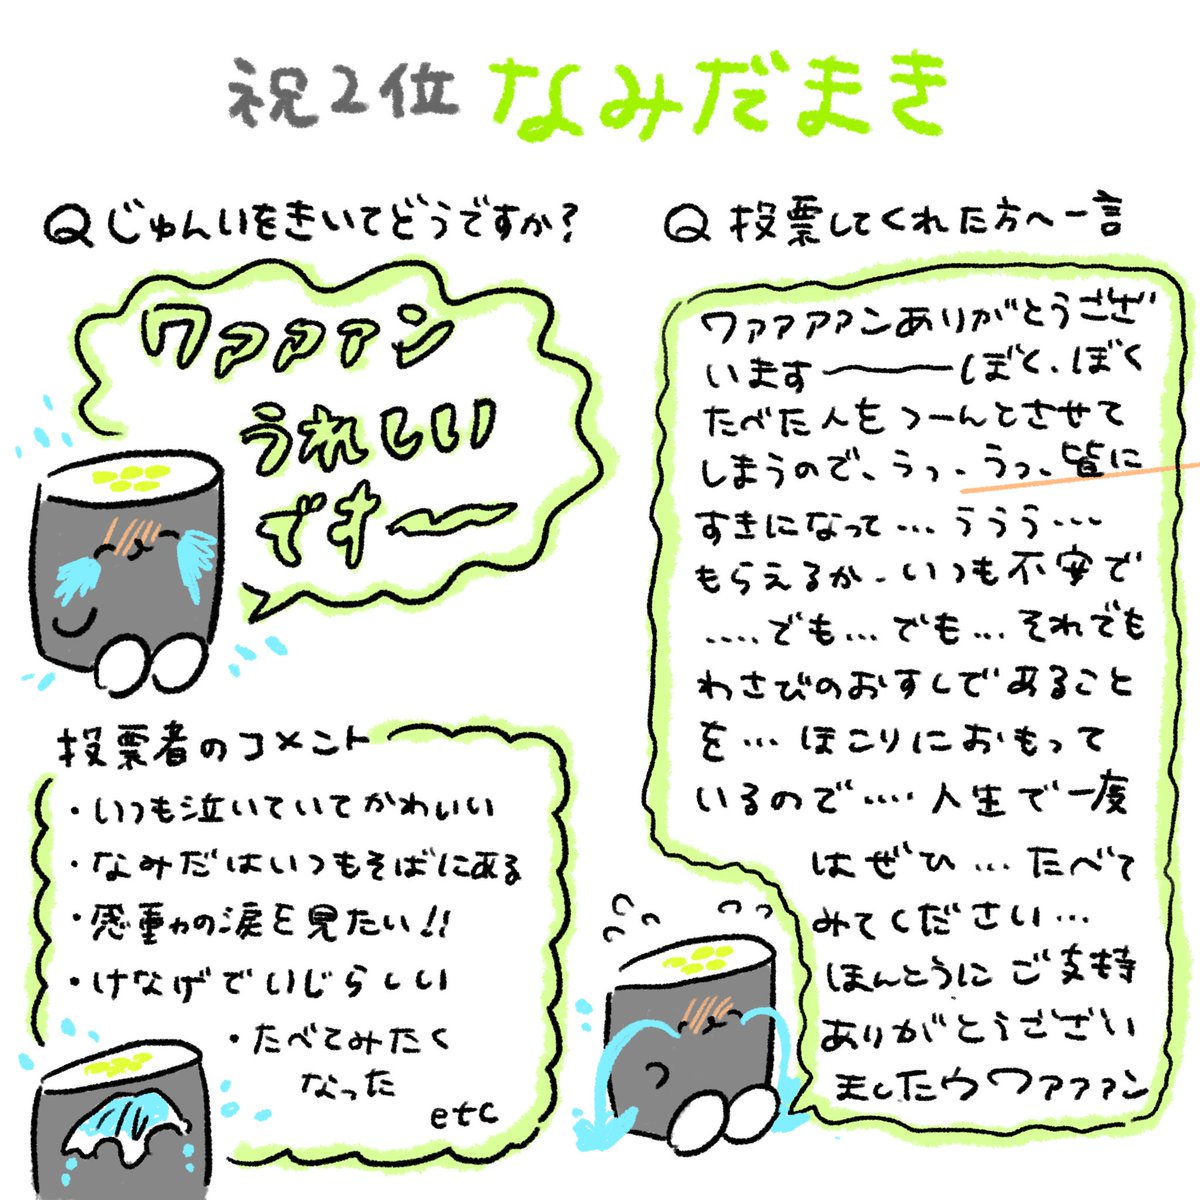 祝2位 なみだまき
Q じゅんいをきいてどうですか?
ワァァァン
うれしい
です〜
投票者のコメント
・いつも泣いていてかわいい
・なみだはいつもそばにある
・感動の涙を見たい!!
・けなげでいじらしい
・たべてみたく
なった
etc
Q 投票してくれた方へ一言
ワァァァァァンありがとうござ
います〜〜ぼく、ぼく
たべた人をつーんとさせて
しまうので、うっ、うっ、皆に
すきになって…ううう…
もらえるか、いつも不安で
....でも…でも…それでも
わさびのおすしであること
を…ほこりにおもって
いるので....人生で一度
はぜひ…たべて
みてください…
ほんとうにご支持
ありがとうござい
ましたウワァァァン